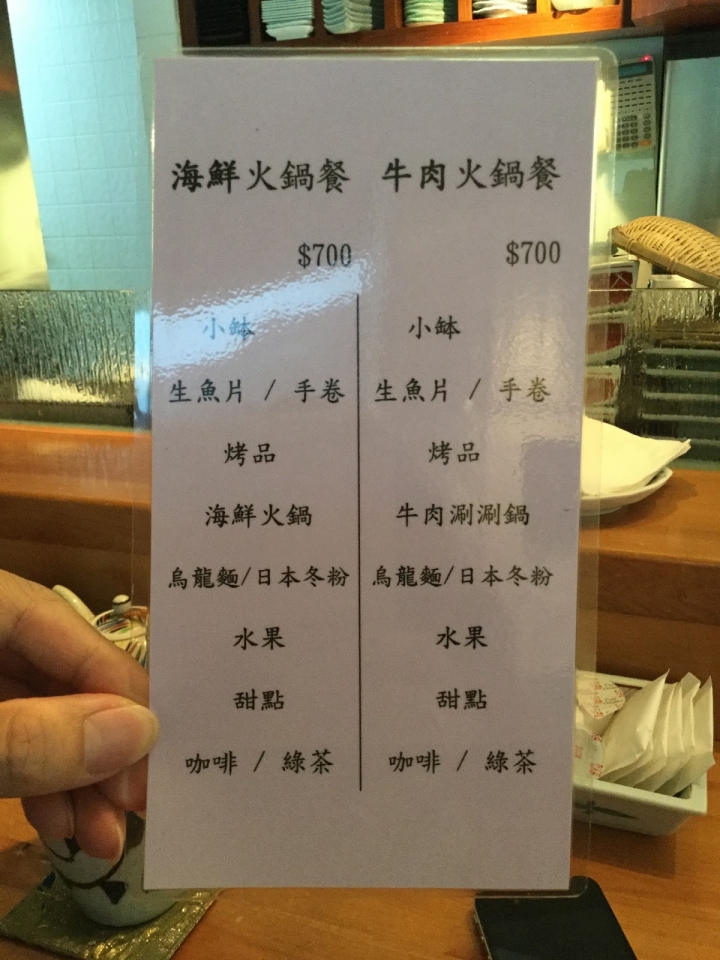 海鮮火鍋餐
$700
小缽
生魚片 / 手卷
烤品
海鮮火鍋
烏龍麵/日本冬粉
水果
甜點
咖啡 / 綠茶
牛肉火鍋餐
$700
小缽
生魚片 / 手卷
烤品
牛肉涮涮鍋
烏龍麵/日本冬粉
水果
甜點
咖啡 / 綠茶